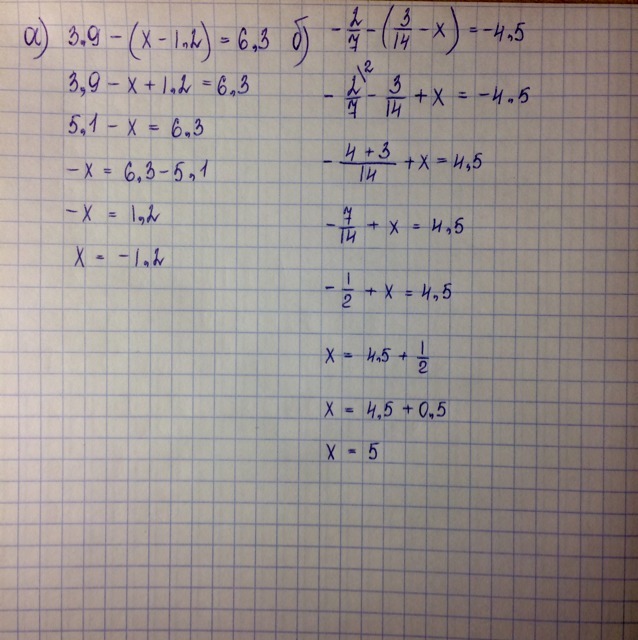 а) 3,9 - (x - 1,2) = 6,3
3,9 - x + 1,2 = 6,3
5,1 - x = 6,3
-x = 6,3 - 5,1
-x = 1,2
x = -1,2
б) -2/7 - (3/14 - x) = -4,5
-2/7\2 - 3/14 + x = -4,5
-(4+3)/14 + x = 4,5
-7/14 + x = 4,5
-1/2 + x = 4,5
x = 4,5 + 1/2
x = 4,5 + 0,5
x = 5